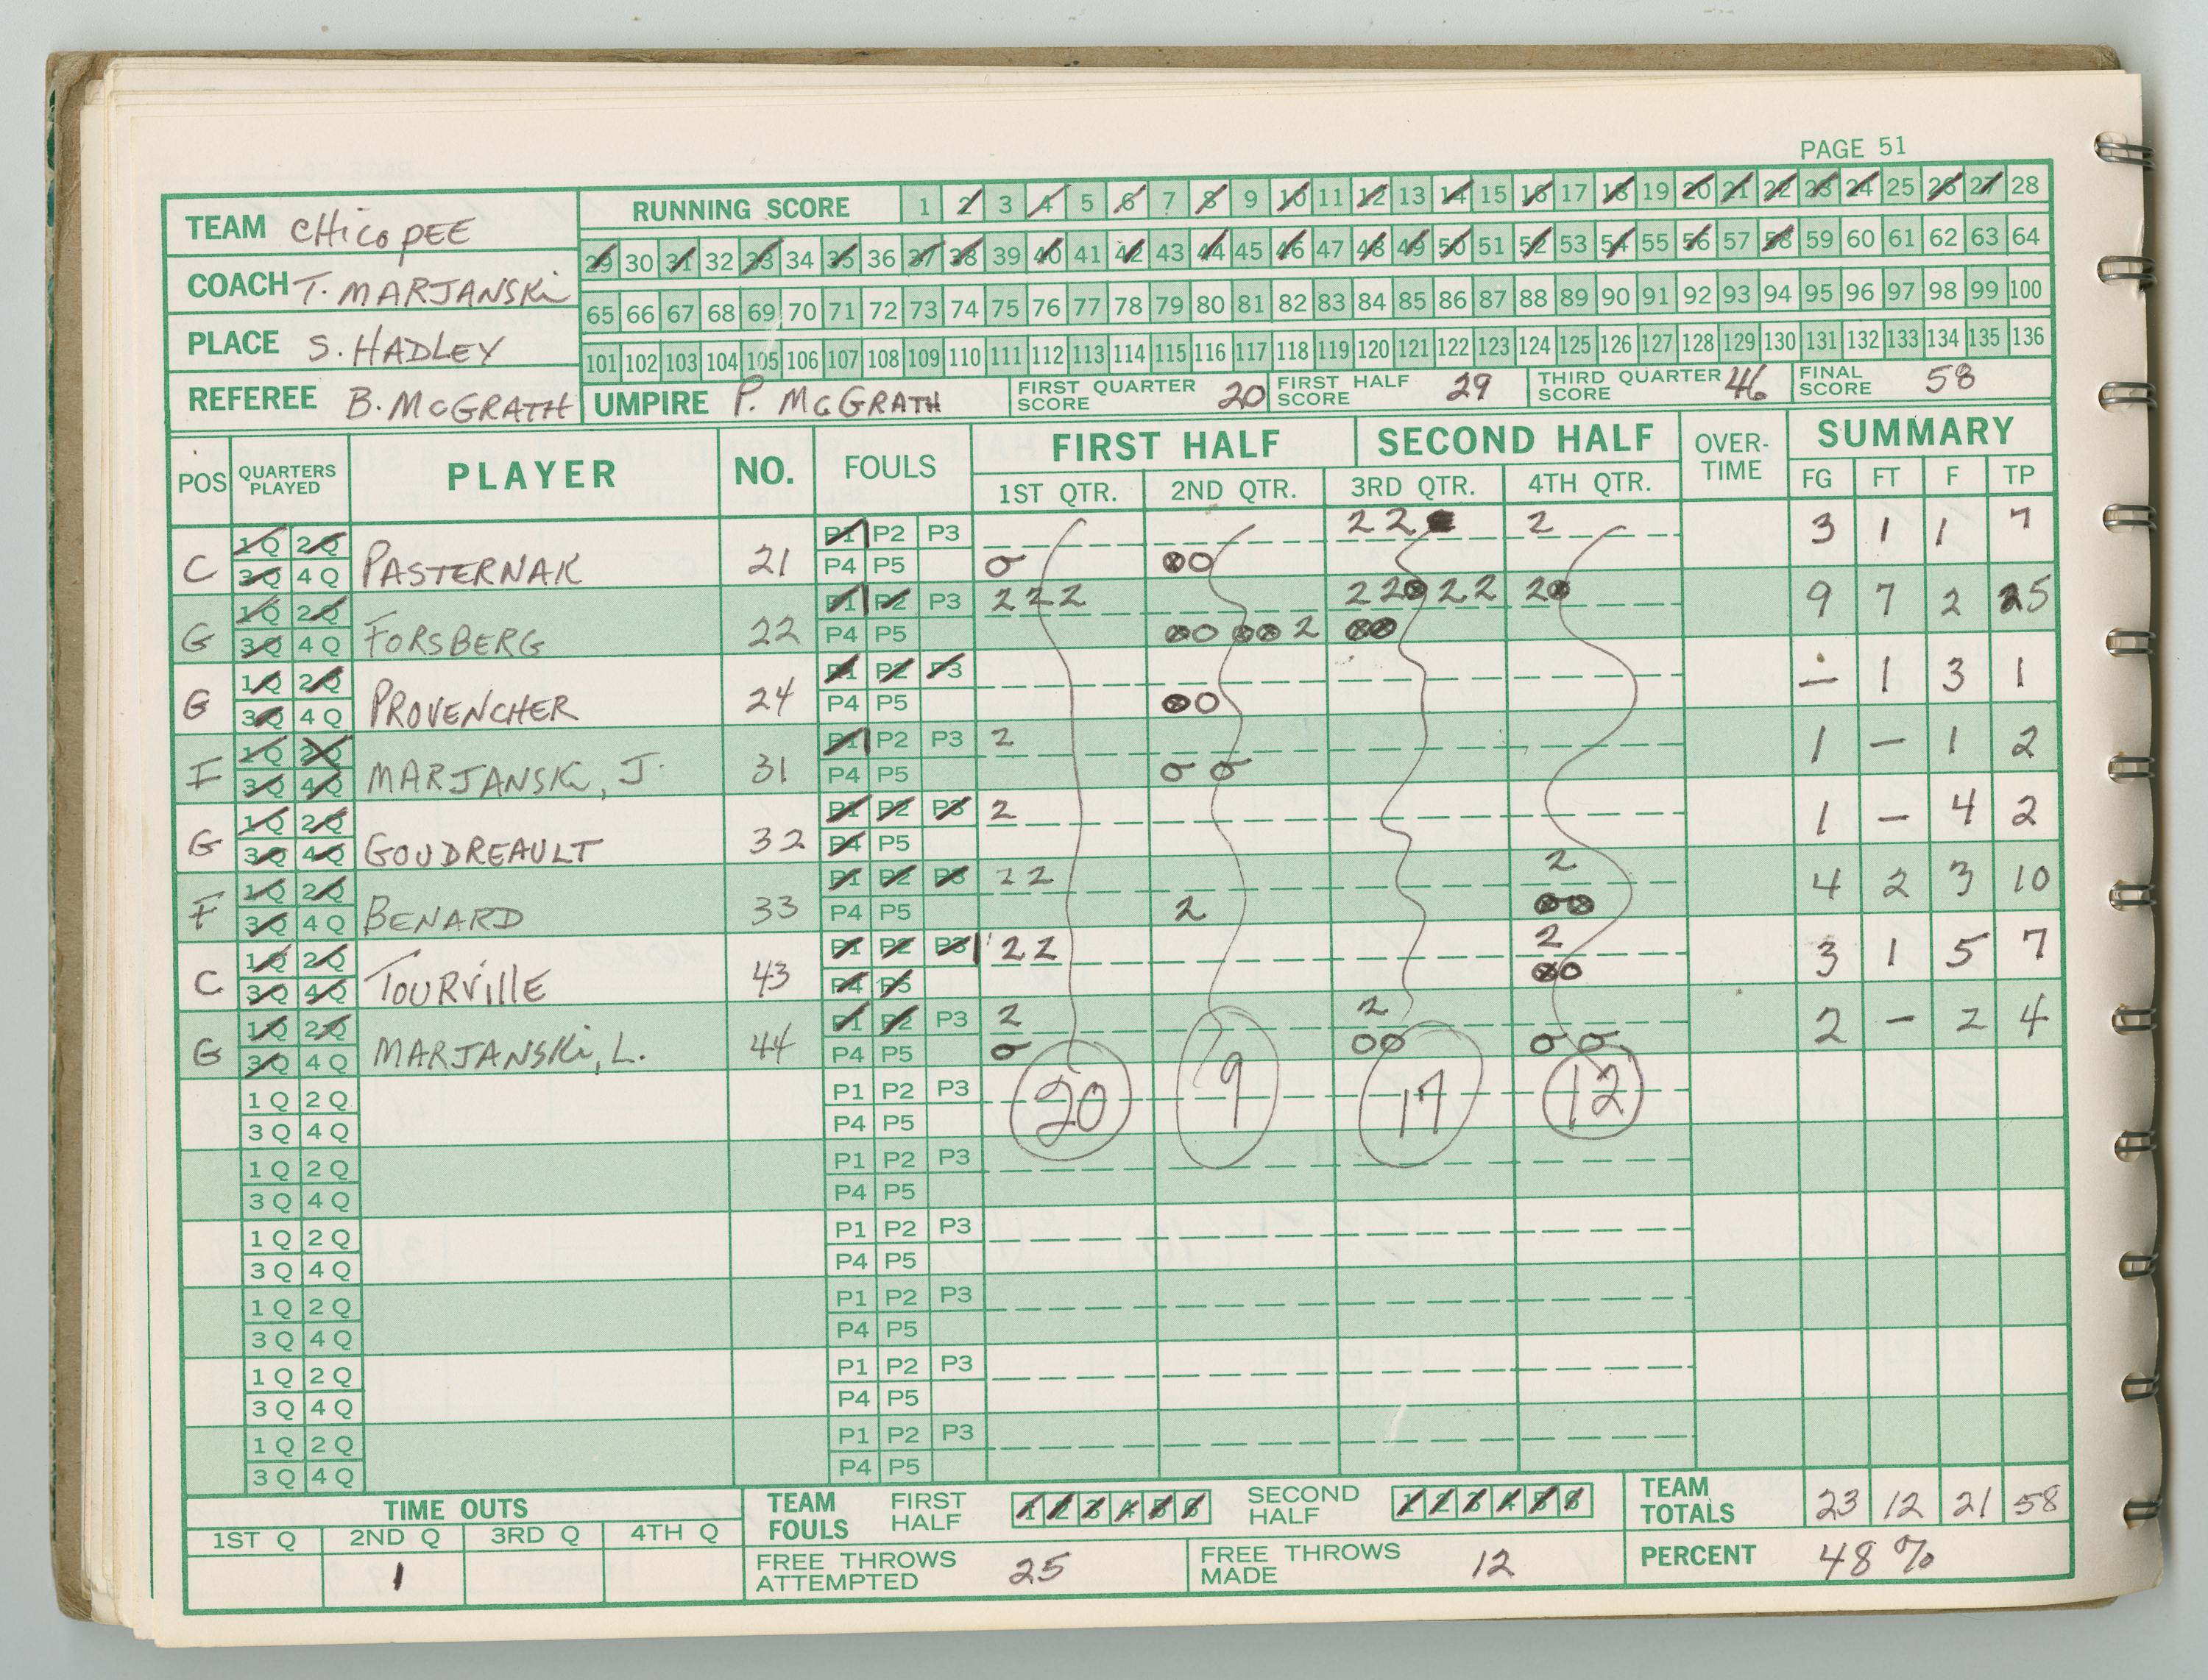 PAGE 51
TEAM CHicoPEE
RUNNING SCORE 1 2 3 4 5 6 7 8 9 10 11 12 13 14 15 16 17 18 19 20 21 22 23 24 25 26 27 28
29 30 31 32 33 34 35 36 37 38 39 40 41 42 43 44 45 46 47 48 49 50 51 52 53 54 55 56 57 58 59 60 61 62 63 64
COACH T. MARJANSKi
65 66 67 68 69 70 71 72 73 74 75 76 77 78 79 80 81 82 83 84 85 86 87 88 89 90 91 92 93 94 95 96 97 98 99 100
PLACE S. HADLEY
101 102 103 104 105 106 107 108 109 110 111 112 113 114 115 116 117 118 119 120 121 122 123 124 125 126 127 128 129 130 131 132 133 134 135 136
REFEREE B. McGRATH UMPIRE P. McGRATH FIRST QUARTER SCORE 20 FIRST HALF SCORE 29 THIRD QUARTER SCORE 46 FINAL SCORE 58
POS QUARTERS PLAYED PLAYER NO. FOULS FIRST HALF SECOND HALF OVER-TIME SUMMARY
1ST QTR. 2ND QTR. 3RD QTR. 4TH QTR. FG FT F TP
1Q 2Q P1 P2 P3 2 2 2
C 3Q 4Q PASTERNAK 21 P4 P5 3 1 1 7
1Q 2Q P1 P2 P3 2 2 2 2 2 2 2 2
G 3Q 4Q FORSBERG 22 P4 P5 2 9 7 2 25
1Q 2Q P1 P2 P3
G 3Q 4Q PROVENCHER 24 P4 P5 — 1 3 1
1Q 2Q P1 P2 P3 2
F 3Q 4Q MARJANSKi, J. 31 P4 P5 1 — 1 2
1Q 2Q P1 P2 P3 2
G 3Q 4Q GOUDREAULT 32 P4 P5 1 — 4 2
1Q 2Q P1 P2 P3 2 2 2
F 3Q 4Q BENARD 33 P4 P5 2 4 2 3 10
1Q 2Q P1 P2 P3 2 2 2
C 3Q 4Q TOURVillE 43 P4 P5 3 1 5 7
1Q 2Q P1 P2 P3 2 2
G 3Q 4Q MARJANSKi, L. 44 P4 P5 2 — 2 4
1Q 2Q P1 P2 P3 20 9 17 12
3Q 4Q P4 P5
1Q 2Q P1 P2 P3
3Q 4Q P4 P5
1Q 2Q P1 P2 P3
3Q 4Q P4 P5
1Q 2Q P1 P2 P3
3Q 4Q P4 P5
1Q 2Q P1 P2 P3
3Q 4Q P4 P5
1Q 2Q P1 P2 P3
3Q 4Q P4 P5
TIME OUTS TEAM FOULS FIRST HALF 1 2 3 4 5 6 SECOND HALF 1 2 3 4 5 6 TEAM TOTALS 23 12 21 58
1ST Q 2ND Q 3RD Q 4TH Q
1 FREE THROWS ATTEMPTED 25 FREE THROWS MADE 12 PERCENT 48%